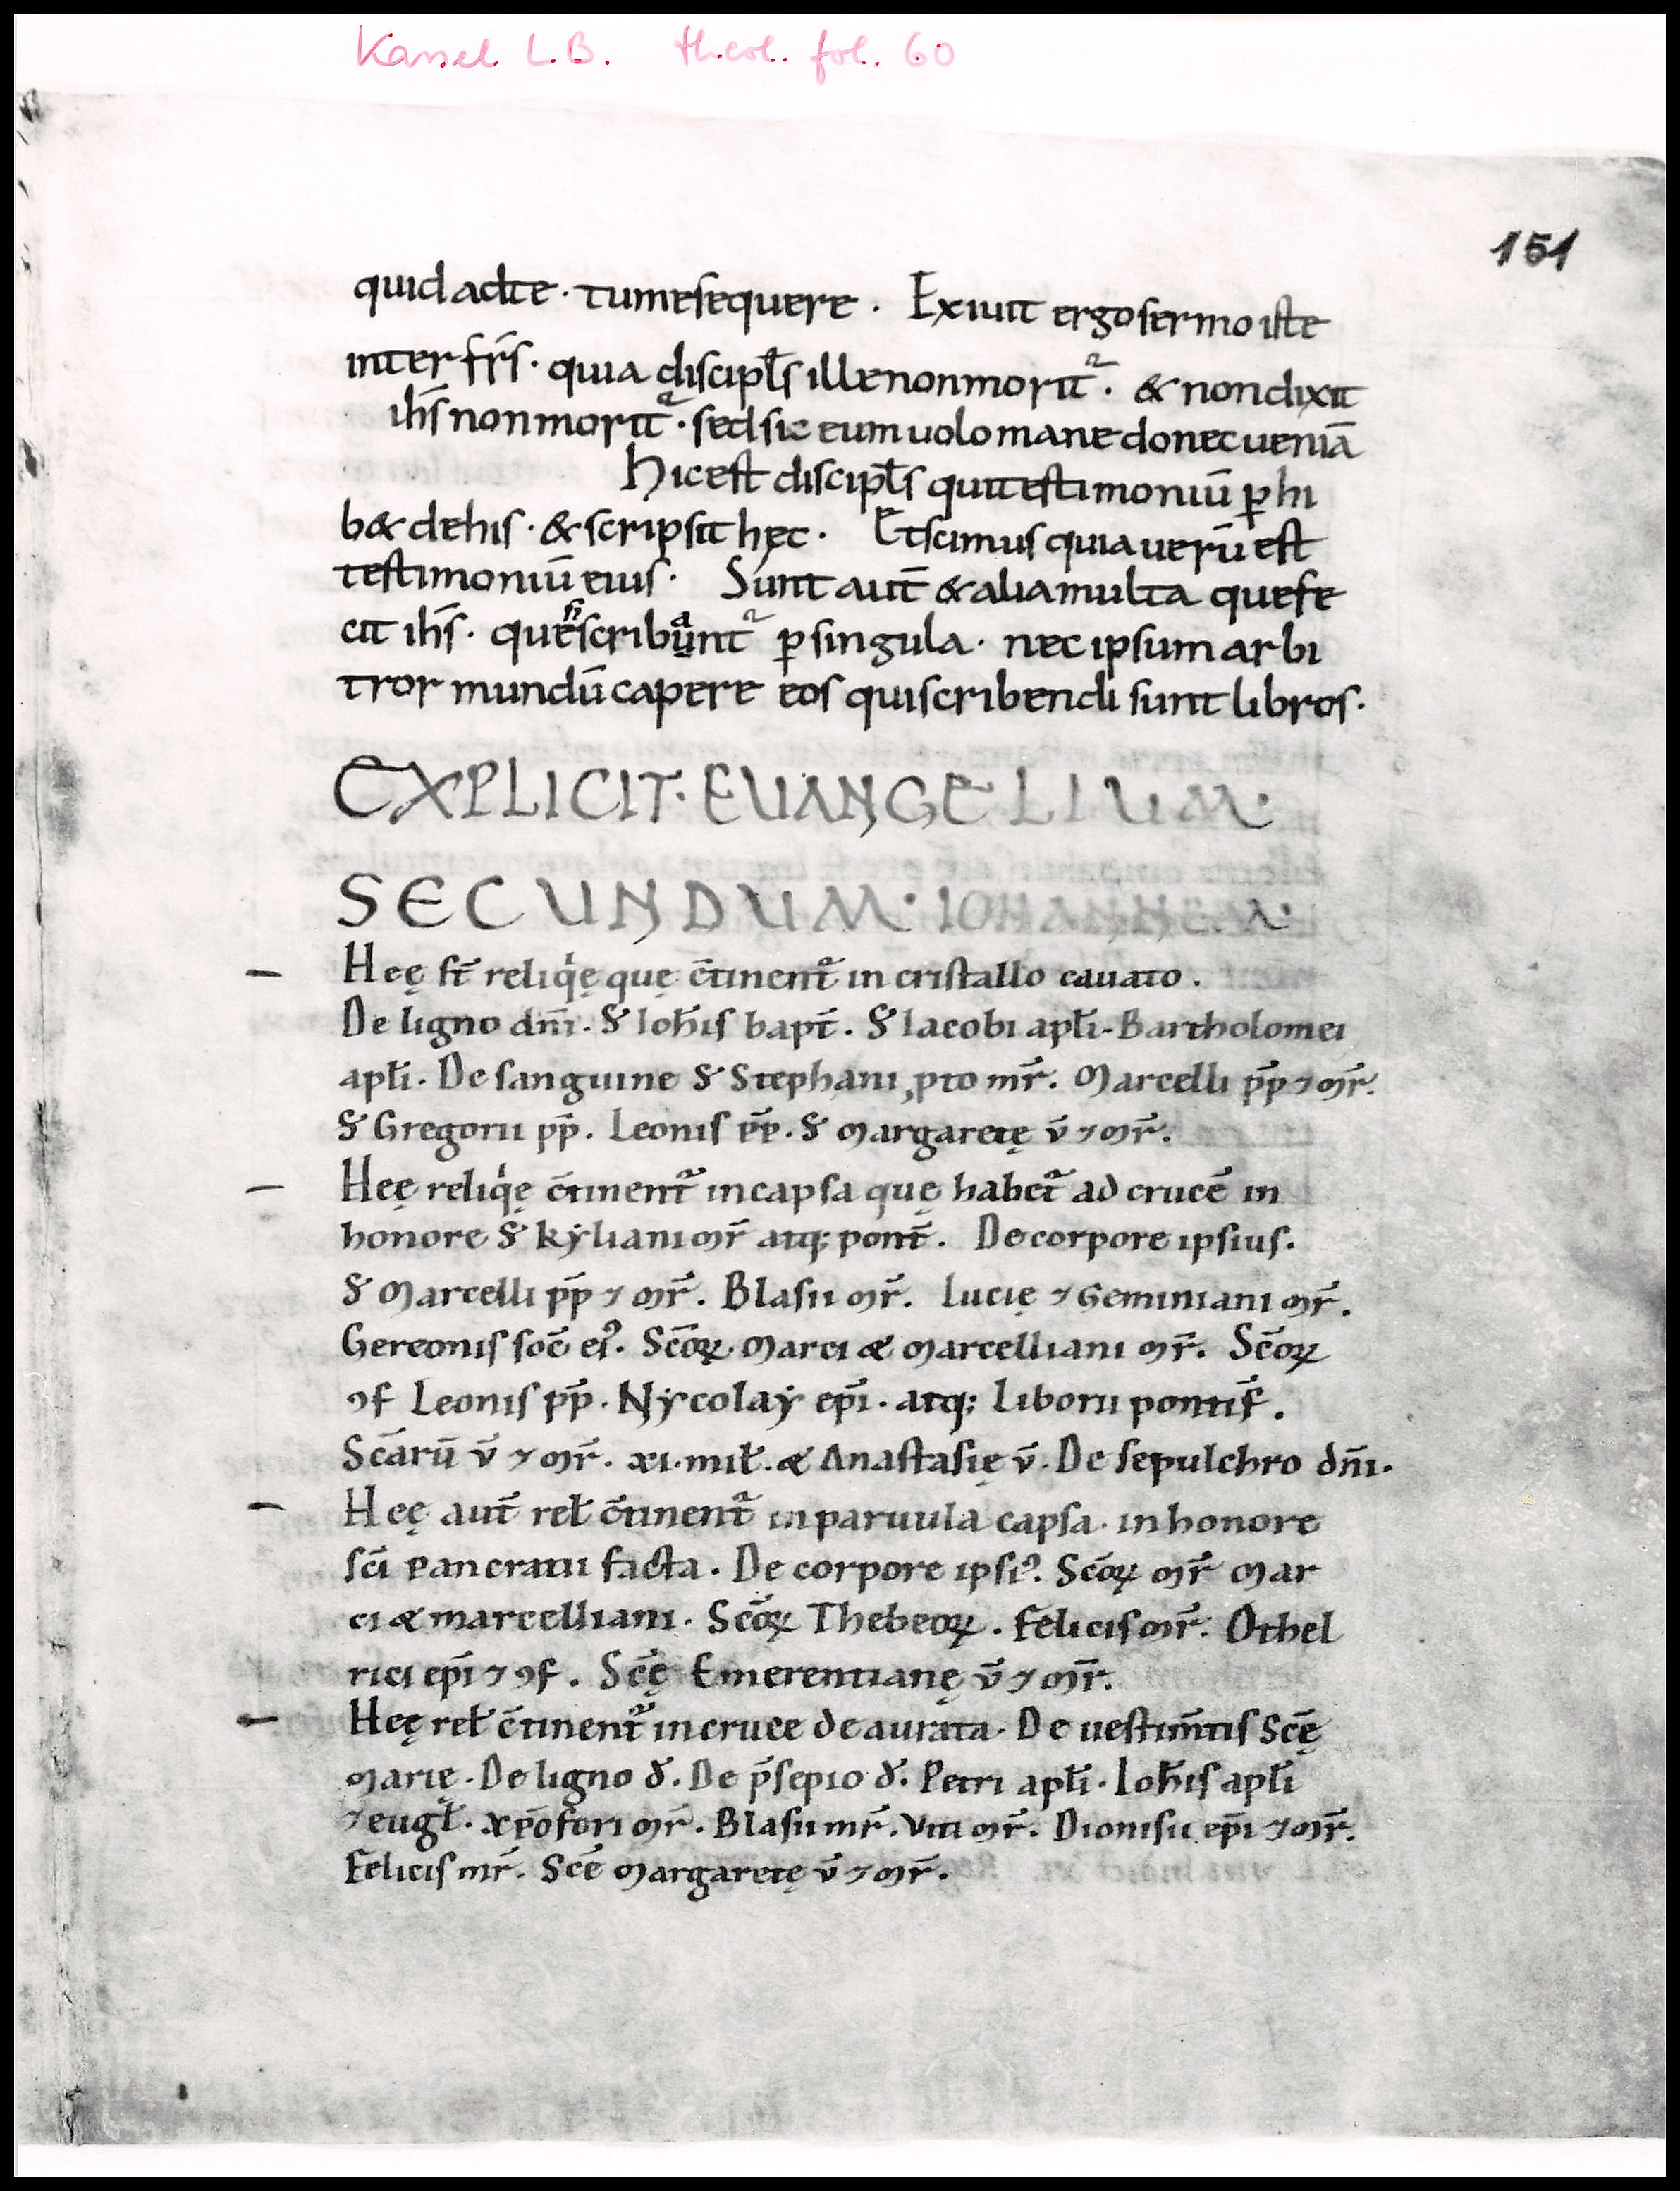 Kassel L.B. theol. fol. 60
151
quid ad te · tu me sequere . Exiuit ergo sermo iste
inter fr̄s · quia discipl̄s ille non morit᷑ · & non dixit
ih̄s non morit᷑ · sed sic eum uolo mane donec ueniā
Hic est discipl̄s qui testimoniū ꝑhi
b& de his · & scripsit hęc · Et scimus quia uerū est
testimoniū eius · Sunt aut̄ & alia multa que fe
cit ih̄s · que si scribant᷑ ꝑ singula · nec ipsum arbi
tror mundū capere eos qui scribendi sunt libros ·
EXPLICIT · EUANGELIUM ·
SECUNDUM · IOHANNEM ·
Heę st̄ reliq'ę quę c̄tinent᷑ in cristallo cauato .
De ligno dn̄i . S' Ioh̄is bapt̄ . S' Iacobi apl̄i . Bartholomei
apl̄i . De sanguine S' Stephani ꝓto mr̄ . Marcelli pp̄ ⁊ mr̄ .
S' Gregorii pp̄ . Leonis pp̄ . S' Margaretę v̄ ⁊ mr̄ .
Heę reliq'ę c̄tinent᷑ in capsa quę habet᷑ ad crucē in
honore S' kẏliani mr̄ atq; pont̄ . De corpore ipsius .
S' Marcelli pp̄ ⁊ mr̄ . Blasii mr̄ . Lucię ⁊ Geminiani mr̄ .
Gereonis soc̄ eiꝰ . Sc̄oꝝ Marci & marcelliani mr̄ . Sc̄oꝝ
ꝯf Leonis pp̄ . Nẏcolaẏ ep̄i . atq; Liborii pontif̄ .
Sc̄arū v̄ ⁊ mr̄ . xi . mił . & Anastasię v̄ . De sepulchro dn̄i .
Heę aut̄ reł c̄tinent᷑ in paruula capsa . in honore
sc̄i Pancratii facta . De corpore ipsiꝰ . Sc̄oꝝ mr̄ Mar
ci & marcelliani . Sc̄oꝝ Thebeoꝝ . Felicis mr̄ . Othel
rici ep̄i ⁊ ꝯf . Sc̄ę Emerentianę v̄ ⁊ mr̄ .
Heę reł c̄tinent᷑ in cruce deaurata . De uestim̄tis Sc̄ę
Marię . De ligno d̄ . De p̄sepio d̄ . Petri apl̄i . Ioh̄is apl̄i
⁊ eugł . xp̄ofori mr̄ . Blasii mr̄ . Viti mr̄ . Dionisii ep̄i ⁊ mr̄ .
Felicis mr̄ . Sc̄e Margaretę v̄ ⁊ mr̄ .